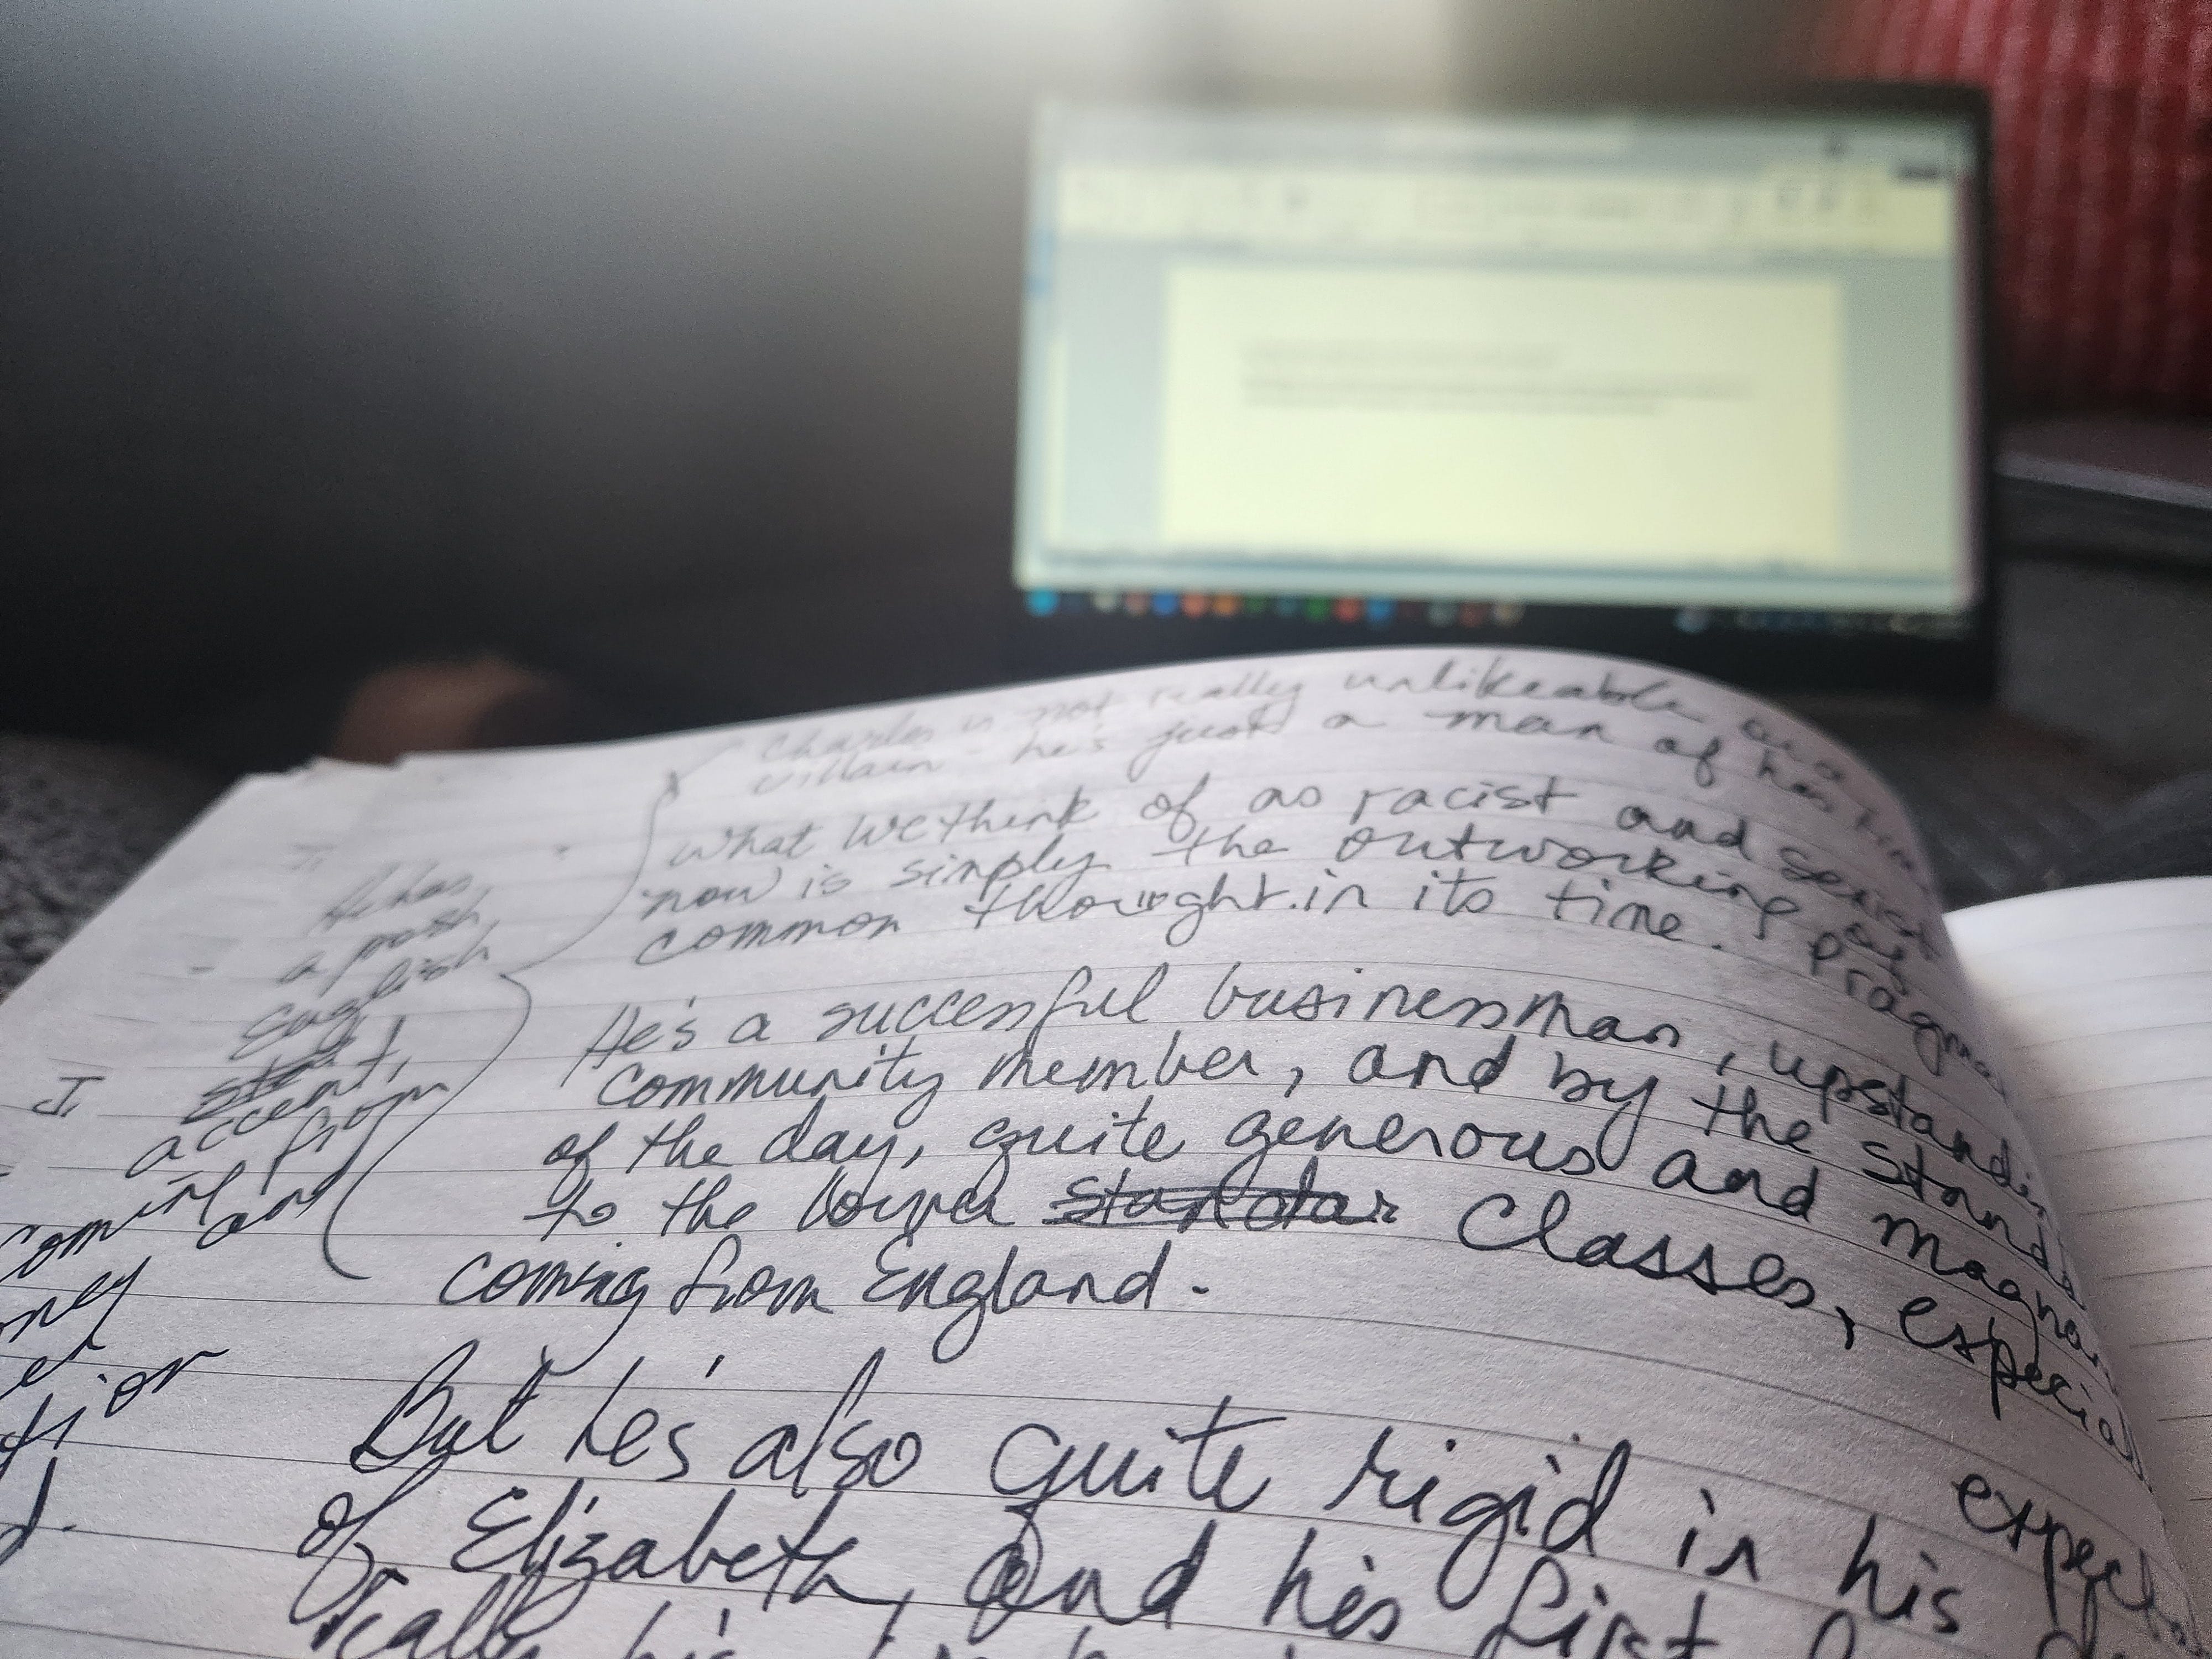 Charles is not really unlikeable or a
villain - he's just a man of his time
What we think of as racist and sexist
now is simply the outworking of pragma
common thought in its time.
He's a successful businessman, upstandin
community member, and by the stands
of the day, quite generous and magna
to the lower standar classes, especial
coming from England.
But he's also quite rigid in his expec
of Elizabeth, and his first
really his
He has
a posh
English
accent,
coming from
an